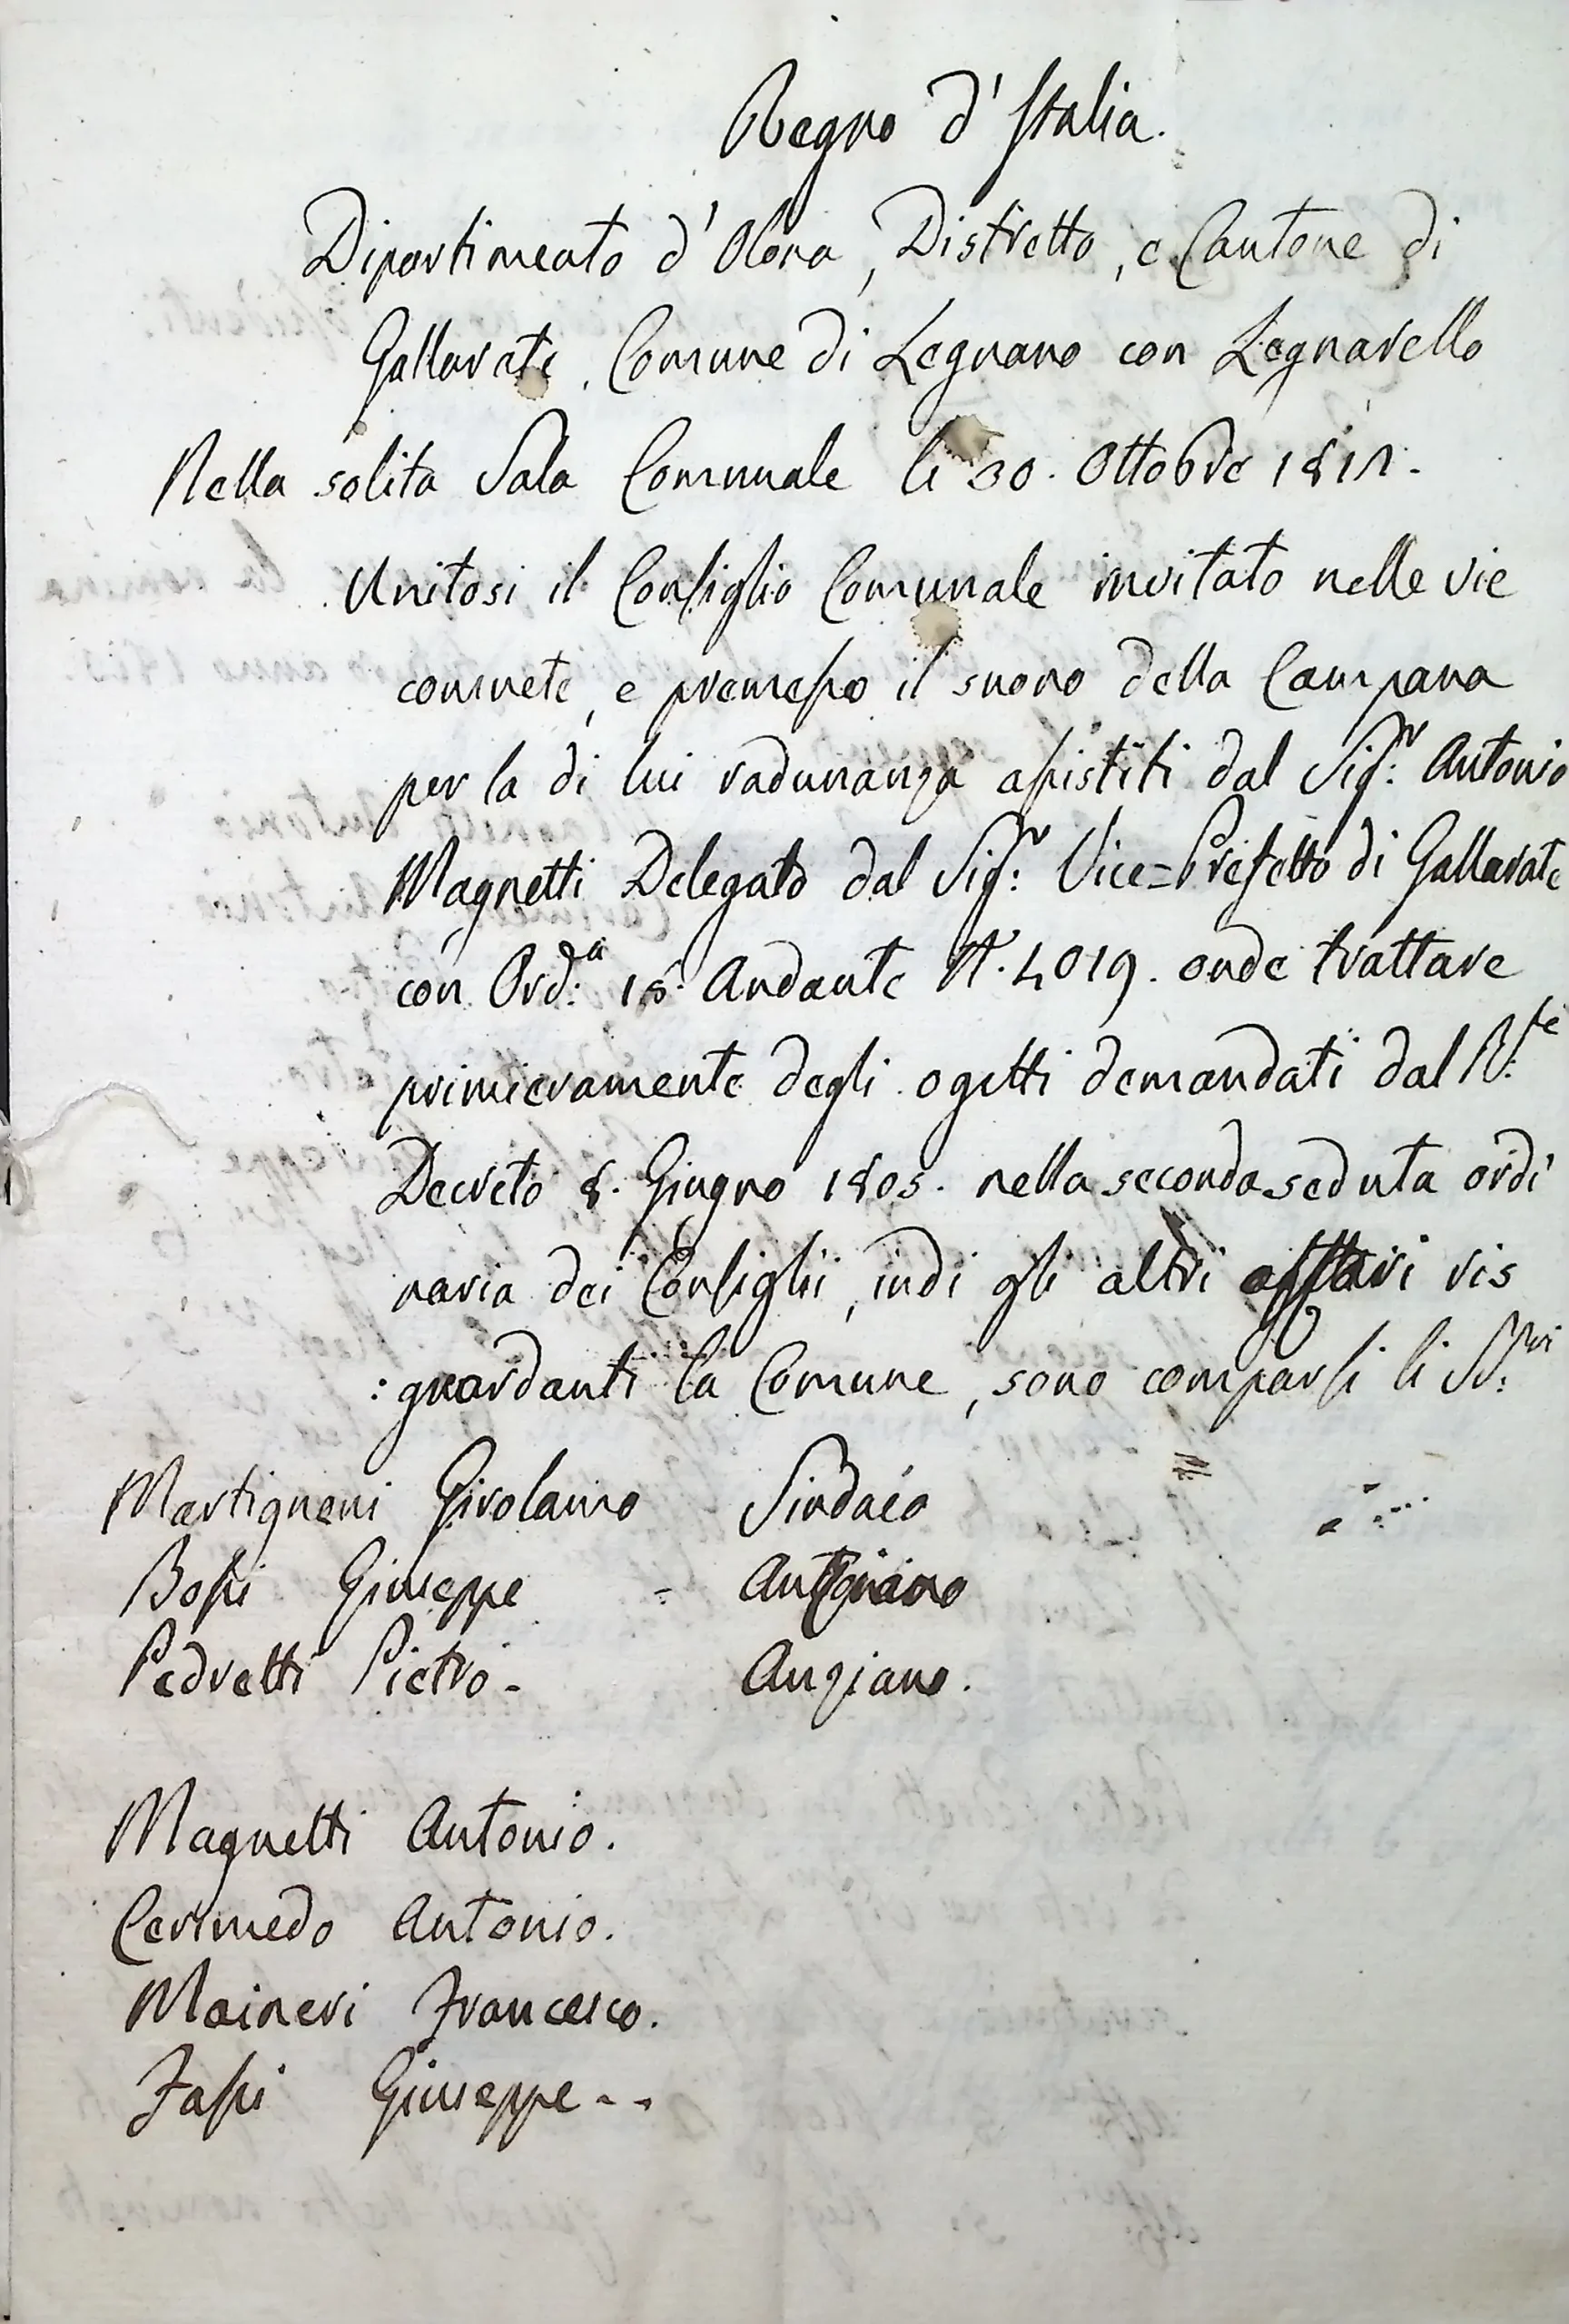 Regno d'Italia.
Dipartimento d'Olona, Distretto, e Cantone di
Gallarate, Comune di Legnano con Legnarello
Nella solita Sala Comunale li 30. Ottobre
Unitosi il Consiglio Comunale invitato nelle vie
consuete, e premesso il suono della Campana
per la di lui radunanza assistiti dal Sigr: Antonio
Magnetti Delegato dal Sigr: Vice=Prefetto di Gallarate
con Ord:a Andante N. 4019. onde trattare
primieramente degli ogetti demandati dal R:le
Decreto 8. Giugno 1805. nella seconda seduta ordi
naria dei Consiglii, indi gli altri affari ris
:guardanti la Comune, sono comparsi li SS:ri
Martignoni Girolamo Sindaco
Bossi Giuseppe - Anziano
Pedretti Pietro - Anziano.
Magnetti Antonio.
Cerimedo Antonio.
Maineri Francesco.
Fassi Giuseppe - -